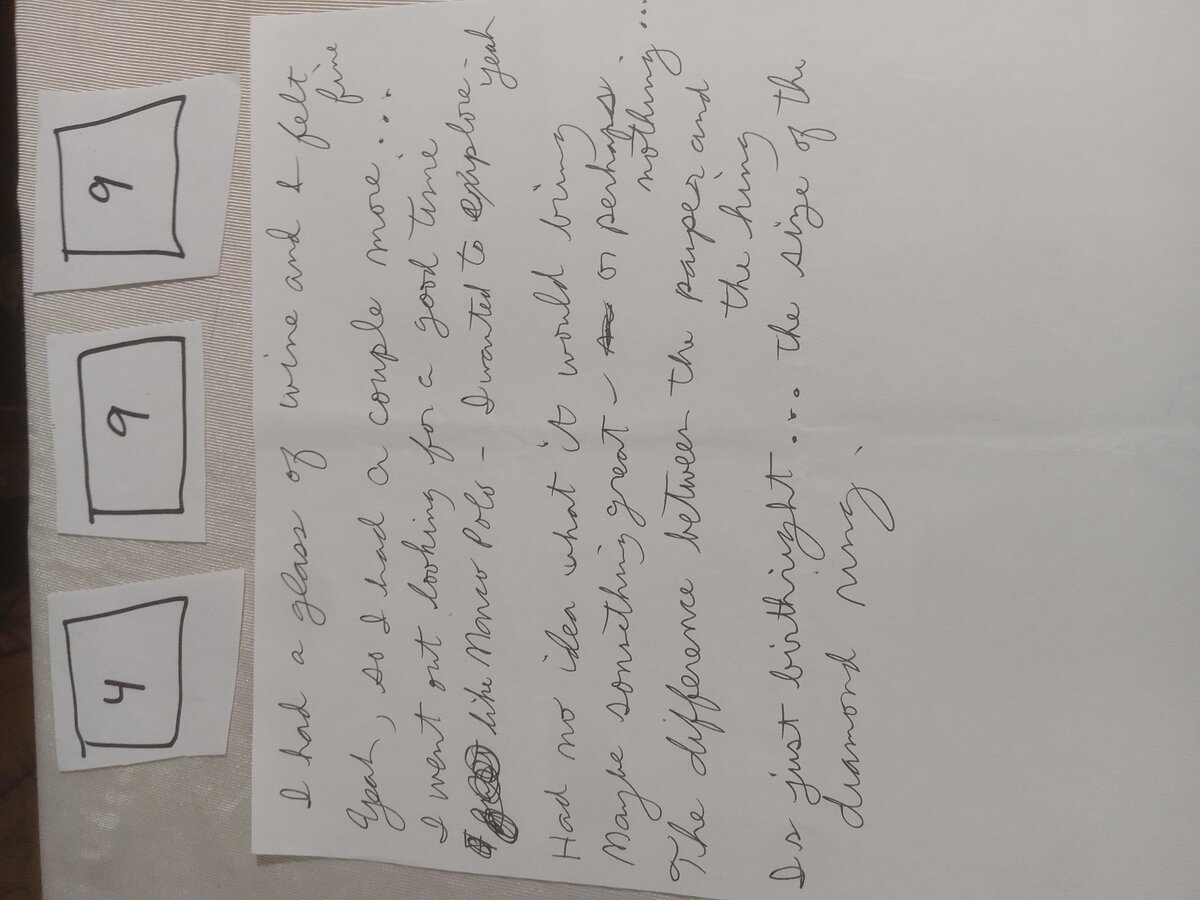 4 9 9
I had a glass of wine and I felt
fine
Yeah, so I had a couple more...
I went out looking for a good time
like Marco Polo - I wanted to explore -
yeah
Had no idea what it would bring
Maybe something great - or perhaps
nothing...
The difference between the pauper and
the king
Is just birthright... the size of the
diamond ring.